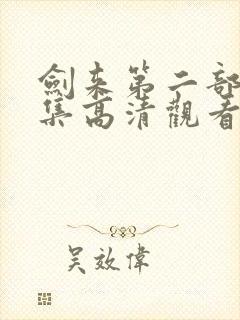 劍来第二部
集高清觀看
吴效偉